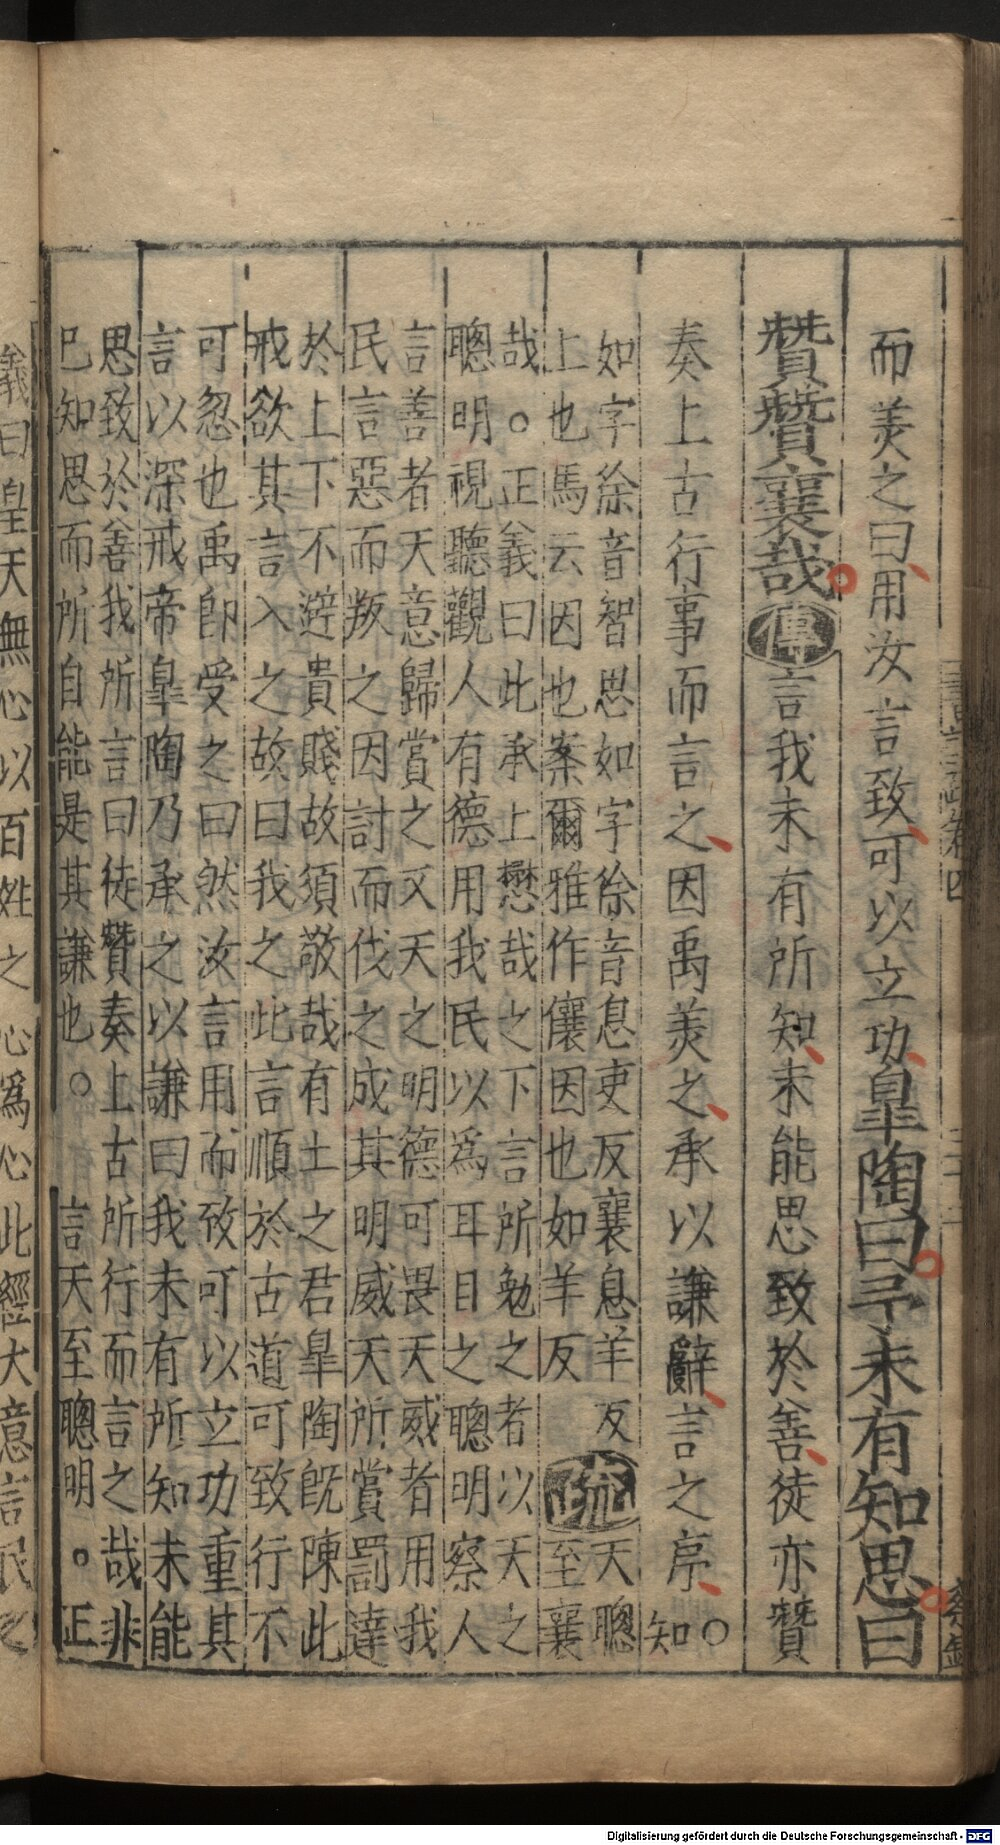 而美之曰用汝言致可以立功皐陶曰予未有知思曰
贊贊襄哉傳言我未有所知未能思致於善徒亦贊
奏上古行事而言之因禹美之承以謙辭言之序○知
如字徐音智思如字徐音息吏反襄息羊反疏天聰
上也馬云因也案爾雅作儴因也如羊反至襄
哉○正義曰此承上懋哉之下言所勉之者以天之
聰明視聽觀人有德用我民以為耳目之聰明察人
言善者天意歸賞之又天之明德可畏天威者用我
民言惡而叛之因討而伐之成其明威天所賞罰達
於上下不避貴賤故須敬哉有土之君皐陶旣陳此
戒欲其言入之故曰我之此言順於古道可致行不
可忽也禹即受之曰然汝言用而致可以立功重其
言以深戒帝皐陶乃承之以謙曰我未有所知未能
思致於善我所言曰徒贊奏上古所行而言之哉非
已知思而所自能是其謙也○言天至聰明○正
義曰皇天無心以百姓之心爲心此經大意言民之
Digitalisierung gefördert durch die Deutsche Forschungsgemeinschaft - DFG